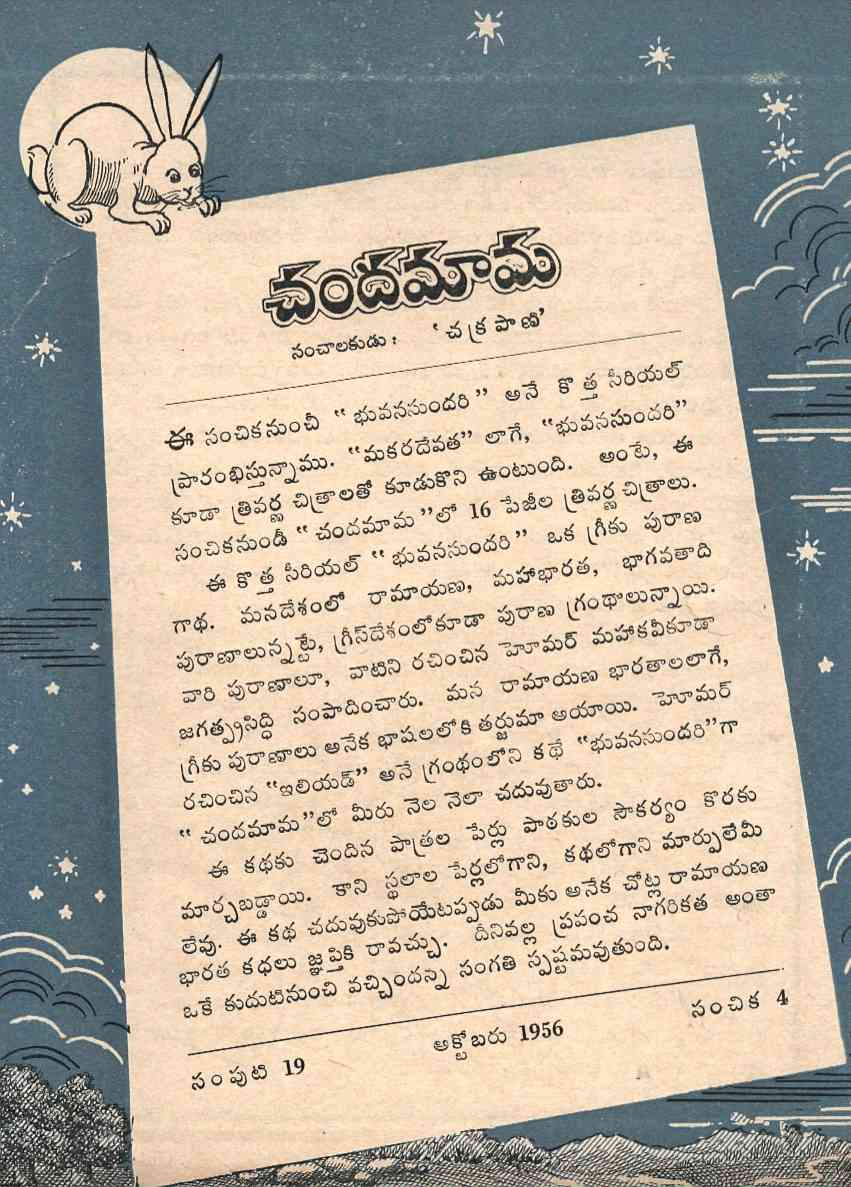 చందమామ
సంచాలకుడు : ‘ చ క్ర పా ణి’
ఈ సంచికనుంచీ “ భువనసుందరి ” అనే కొ త్త సీరియల్
ప్రారంభిస్తున్నాము. “మకరదేవత” లాగే, “భువనసుందరి”
కూడా త్రివర్ణ చిత్రాలతో కూడుకొని ఉంటుంది. అంటే, ఈ
సంచికనుండీ “ చందమామ ”లో 16 పేజీల త్రివర్ణ చిత్రాలు.
ఈ కొ త్త సీరియల్ “ భువనసుందరి ” ఒక గ్రీకు పురాణ
గాథ. మనదేశంలో రామాయణ, మహాభారత, భాగవతాది
పురాణాలున్నట్టే, గ్రీస్‌దేశంలోకూడా పురాణ గ్రంథాలున్నాయి.
వారి పురాణాలూ, వాటిని రచించిన హెూమర్ మహాకవీకూడా
జగత్ప్రసిద్ధి సంపాదించారు. మన రామాయణ భారతాలలాగే,
గ్రీకు పురాణాలు అనేక భాషలలోకి తర్జుమా అయాయి. హెూమర్
రచించిన “ఇలియడ్” అనే గ్రంథంలోని కథే “భువనసుందరి”గా
“ చందమామ”లో మీరు నెల నెలా చదువుతారు.
ఈ కథకు చెందిన పాత్రల పేర్లు పాఠకుల సౌకర్యం కొరకు
మార్చబడ్డాయి. కాని స్థలాల పేర్లలోగాని, కథలోగాని మార్పులేమీ
లేవు. ఈ కథ చదువుకుపోయేటప్పుడు మీకు అనేక చోట్ల రామాయణ
భారత కథలు జ్ఞప్తికి రావచ్చు. దీనివల్ల ప్రపంచ నాగరికత అంతా
ఒకే కుదుటినుంచి వచ్చిందన్న సంగతి స్పష్టమవుతుంది.
సంపుటి 19 అక్టోబరు 1956 సంచిక 4